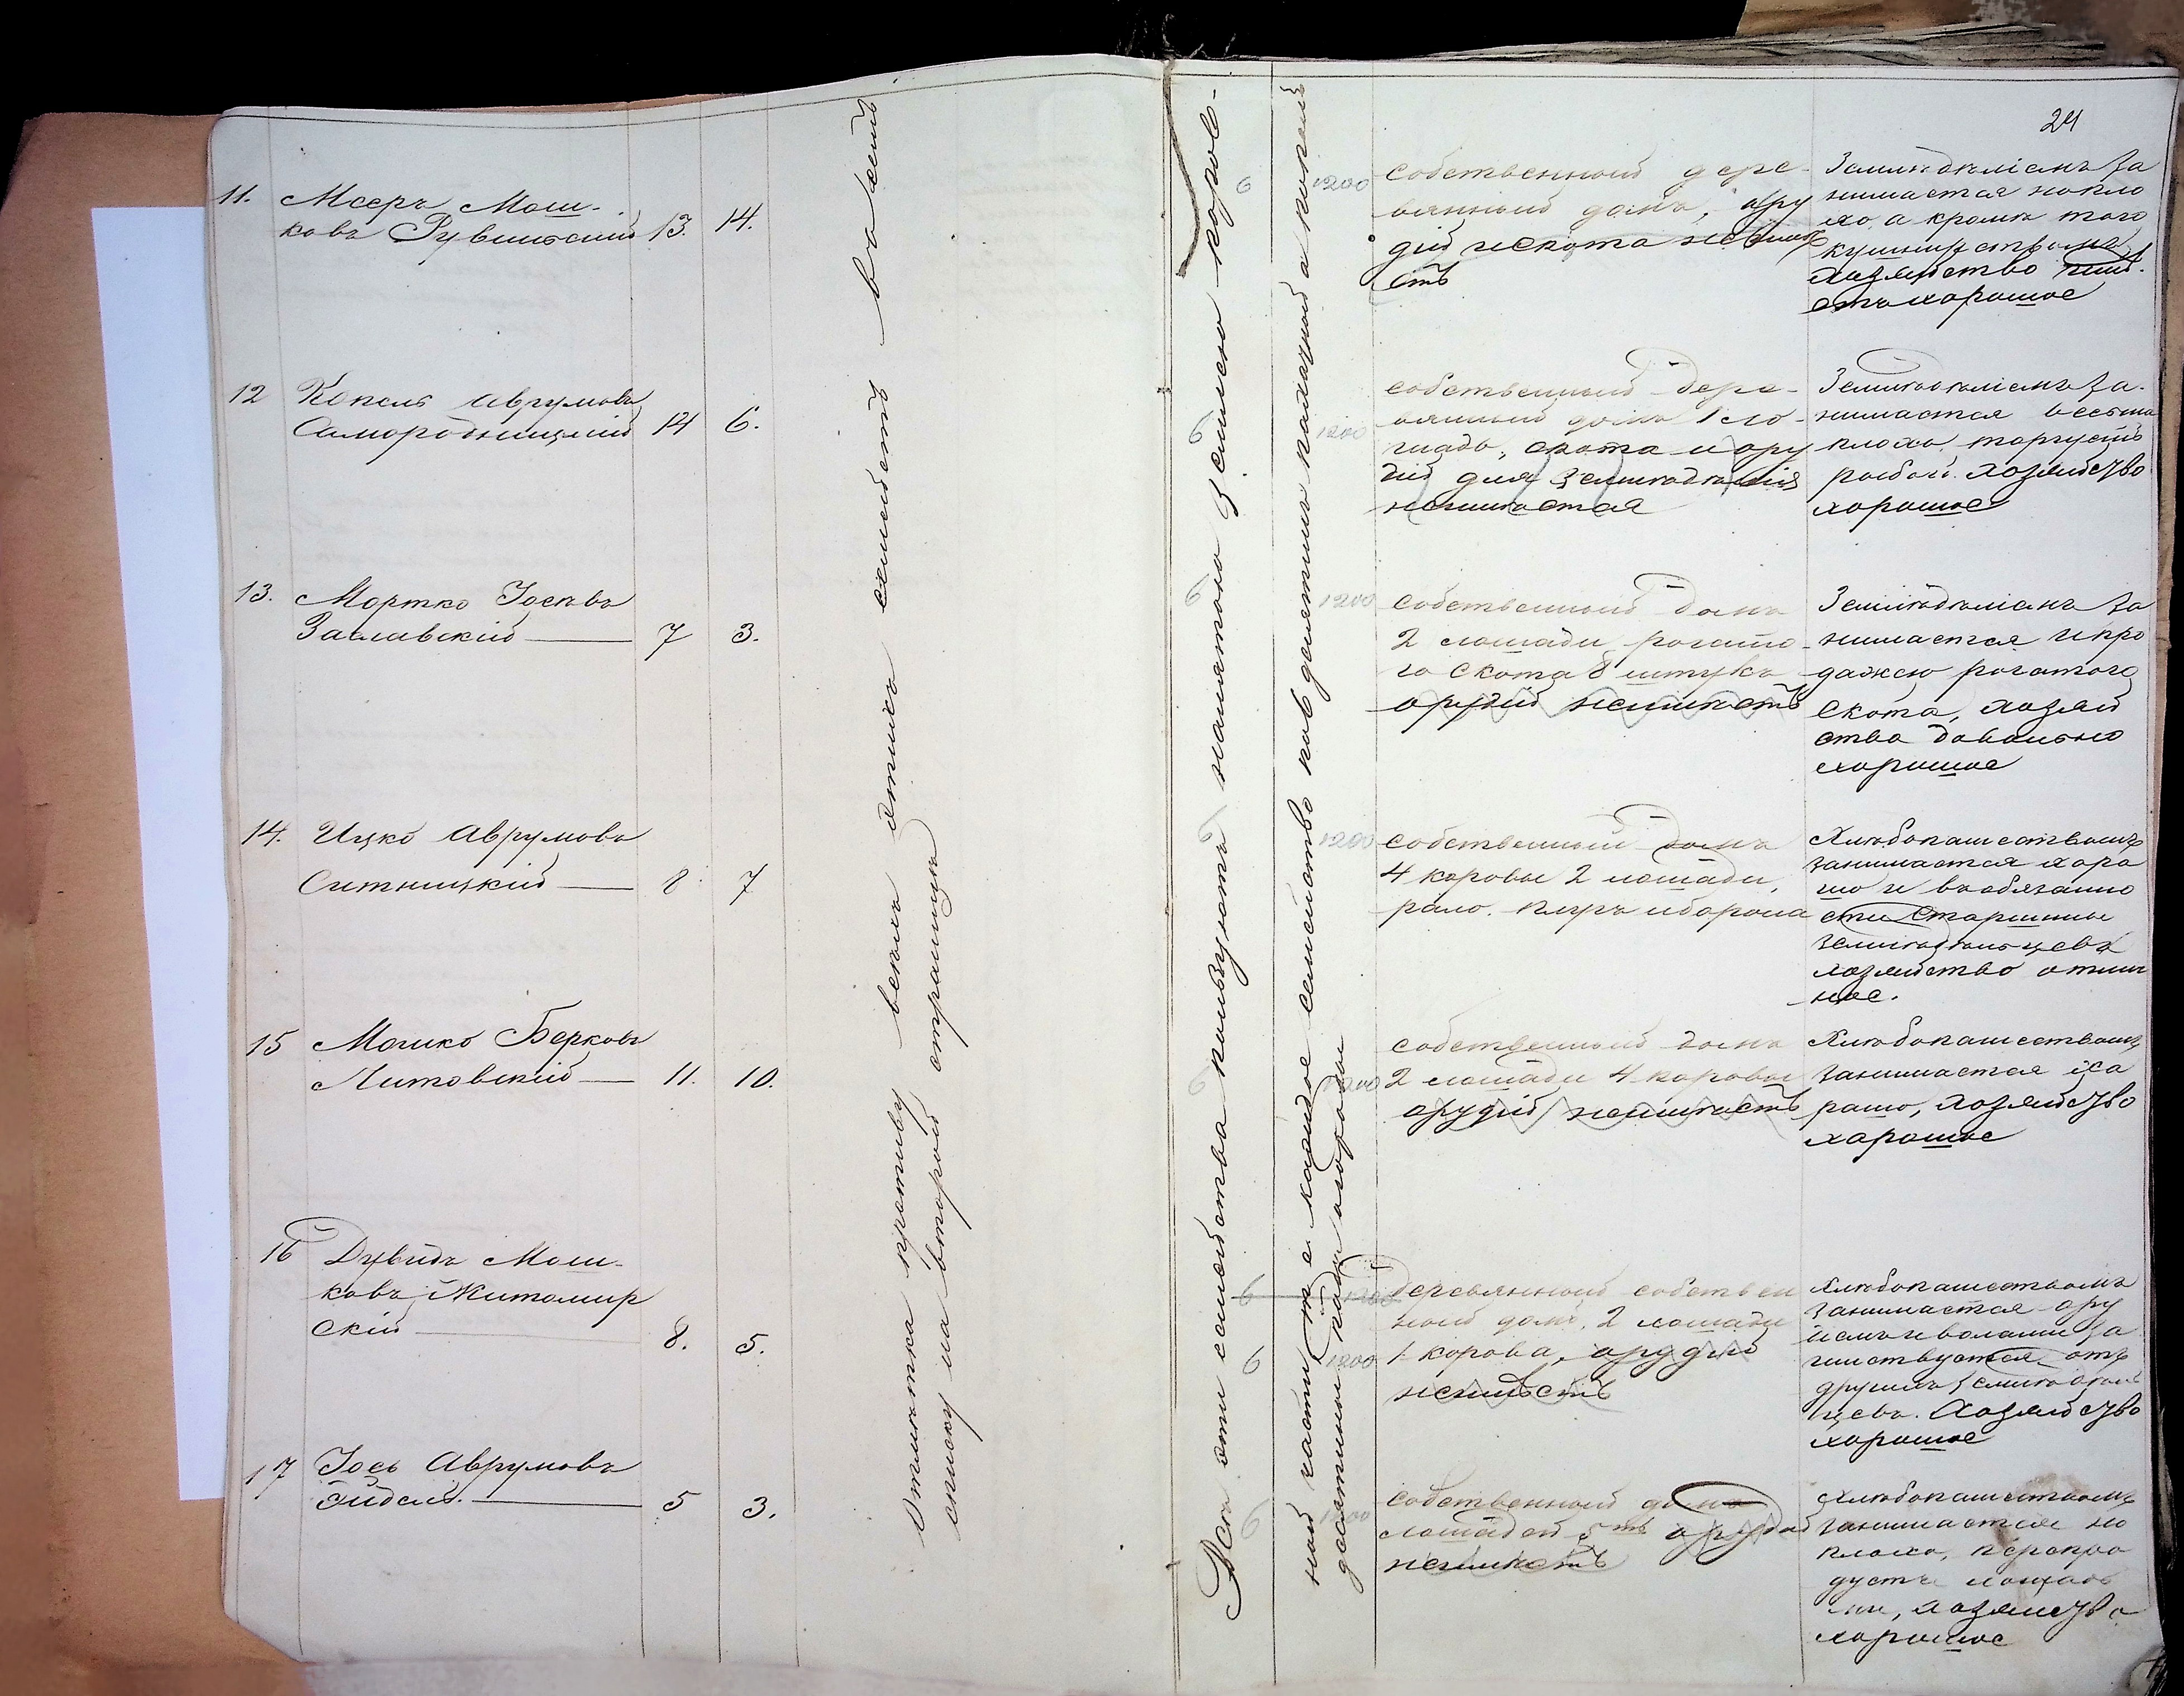 24
11. Мееръ Мош-
ковъ Рувинскій 13. 14.
12 Копель Аврумовъ
Самородницкій 14 6.
13. Мортко Іосевъ
Заславскій 7 3.
14. Ицко Аврумовъ
Ситницкій 8. 7
15 Мошко Берковъ
Литовскій 11. 10.
16 Дувидъ Мош-
ковъ Житомир
скій 8. 5.
17 Іось Аврумовъ
5 3.
Отмѣтка противу всехъ этихъ семействъ
списку на второй страницѣ
Все эти семейства пользуютъ землею
ной части т е каждое семейство пахатной а
десятины подъ огородом
6 1200
собственный дере-
вянный домъ, ору
дій и скота неимѣ
етъ
Земледѣліемъ за
нимается непло
хо, а кромѣ того
хозяйство
хорошое
6 1200
собственный дере-
вянный домъ 1 ло-
шадь, скота и ору
дій для земледѣлія
неимѣется
Земледѣліемъ за-
нимается весьма
плохо торгуетъ
рыбой. хозяйство
хорошое
6 1200
собственный домъ
2 лошади рогато-
го скота 8 штукъ
орудій неимѣетъ
Земледѣліемъ за
нимается и про
дажею рогатого
скота, хозяй
ство довольно
хорошое
6 1200
собственный домъ
4 коровы 2 лошади,
рало. плугъ и борона
Хлебопашествомъ
занимается хоро
шо и въ обязанно
сти старшины
земледѣльцевъ
хозяйство отлич
ное.
6 1200
собственный домъ
2 лошади 4 коровы
орудій неимѣетъ
Хлебопашествомъ
занимается хо
рошо, хозяйство
хорошое
6
6 1200
Деревянный собствен
ный домъ, 2 лошади
1 корова, орудій
неимѣетъ
Хлебопашествомъ
занимается ору
діемъ и волами за
имствуется отъ
другихъ земледѣль
цевъ. Хозяйство
хорошое
6 1200
собственный домъ
лошадей 5ть орудій
неимѣетъ
Хлебопашествомъ
занимается не
плохо, перепро
дуетъ лошадь
ми, хозяйство
хорошое